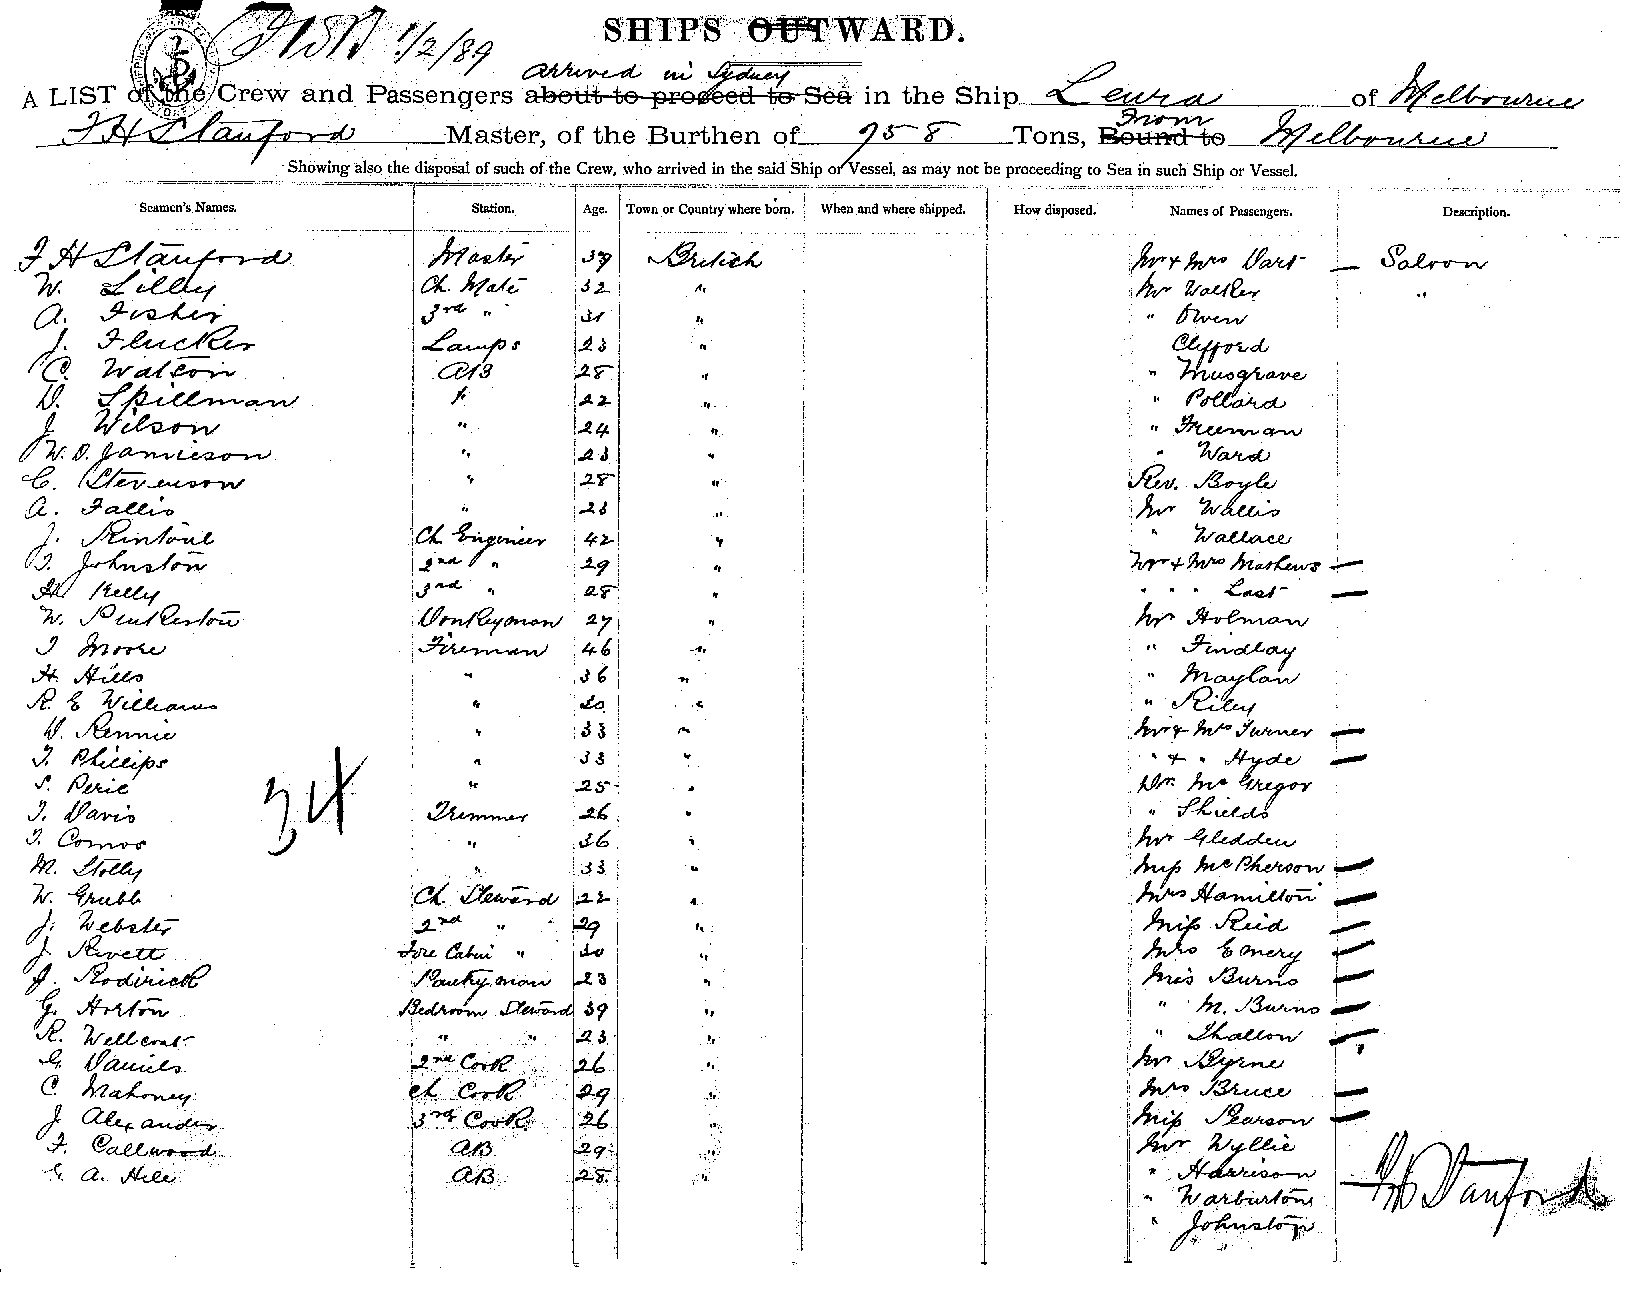 FWB 1/2/89
SHIPS OUTWARD.
arrived in Sydney
A LIST of the Crew and Passengers about to proceed to Sea in the Ship Leura of Melbourne
From
F H Stanford Master, of the Burthen of 958 Tons, Bound to Melbourne
Showing also the disposal of such of the Crew, who arrived in the said Ship or Vessel, as may not be proceeding to Sea in such Ship or Vessel.
Seamen's Names. Station. Age. Town or Country where born. When and where shipped. How disposed. Names of Passengers. Description.
F H Stanford Master 39 British Mr & Mrs Dart — Saloon
W. Lilley Ch. Mate 32 " Mr Walker "
A. Fisher 3rd " 31 " " Owen
J. Flucker Lamps 23 " Clifford
C. Watson AB 28 " " Musgrave
D. Spillman " 22 " " Pollard
J. Wilson " 24 " " Freeman
W. D. Jamieson " 23 " " Ward
C. Stevenson " 28 " Rev. Boyle
A. Fallis " 23 " Mr Wallis
J. Rintoul Ch Engineer 42 " " Wallace
T. Johnston 2nd " 29 " Mr & Mrs Mathews —
H Kelly 3rd " 28 " " " " Last —
W. Pinkerton Donkeyman 27 " Mr Holman
T Moore Fireman 46 " " Findlay
H. Hills " 36 " " Maylan
R. E Williams " 30 " " Riley
D. Rennie " 33 " Mr & Mrs Turner —
T. Phillips " 33 " " & " Hyde —
S. Peric " 25 " Dr. McGregor
T. Davis Trimmer 26 " " Shields
34
T. Comos " 36 " Mr Gledden
M. Stolly " 33 " Miss McPherson —
W. Grubb Ch Steward 22 " Mrs Hamilton —
J. Webster 2nd " 29 " Miss Reid —
J. Rivett Fore Cabin " 30 " Mrs Emery —
J. Roderick Pantryman 23 " Miss Burns —
G. Horton Bedroom Steward 39 " " M. Burns —
R. Wellcoat " " 23 " " Thallon —
G. Daniels 2nd Cook 26 " Mr Byrne
C Mahoney Ch Cook 29 " Mrs Bruce —
J Alexander 3rd Cook 26 " Miss Pearson —
F. Callwood AB 29 " Mr Wyllie
G A. Hill AB 28 " " Harrison
" Warburton
FH Stanford
" Johnston